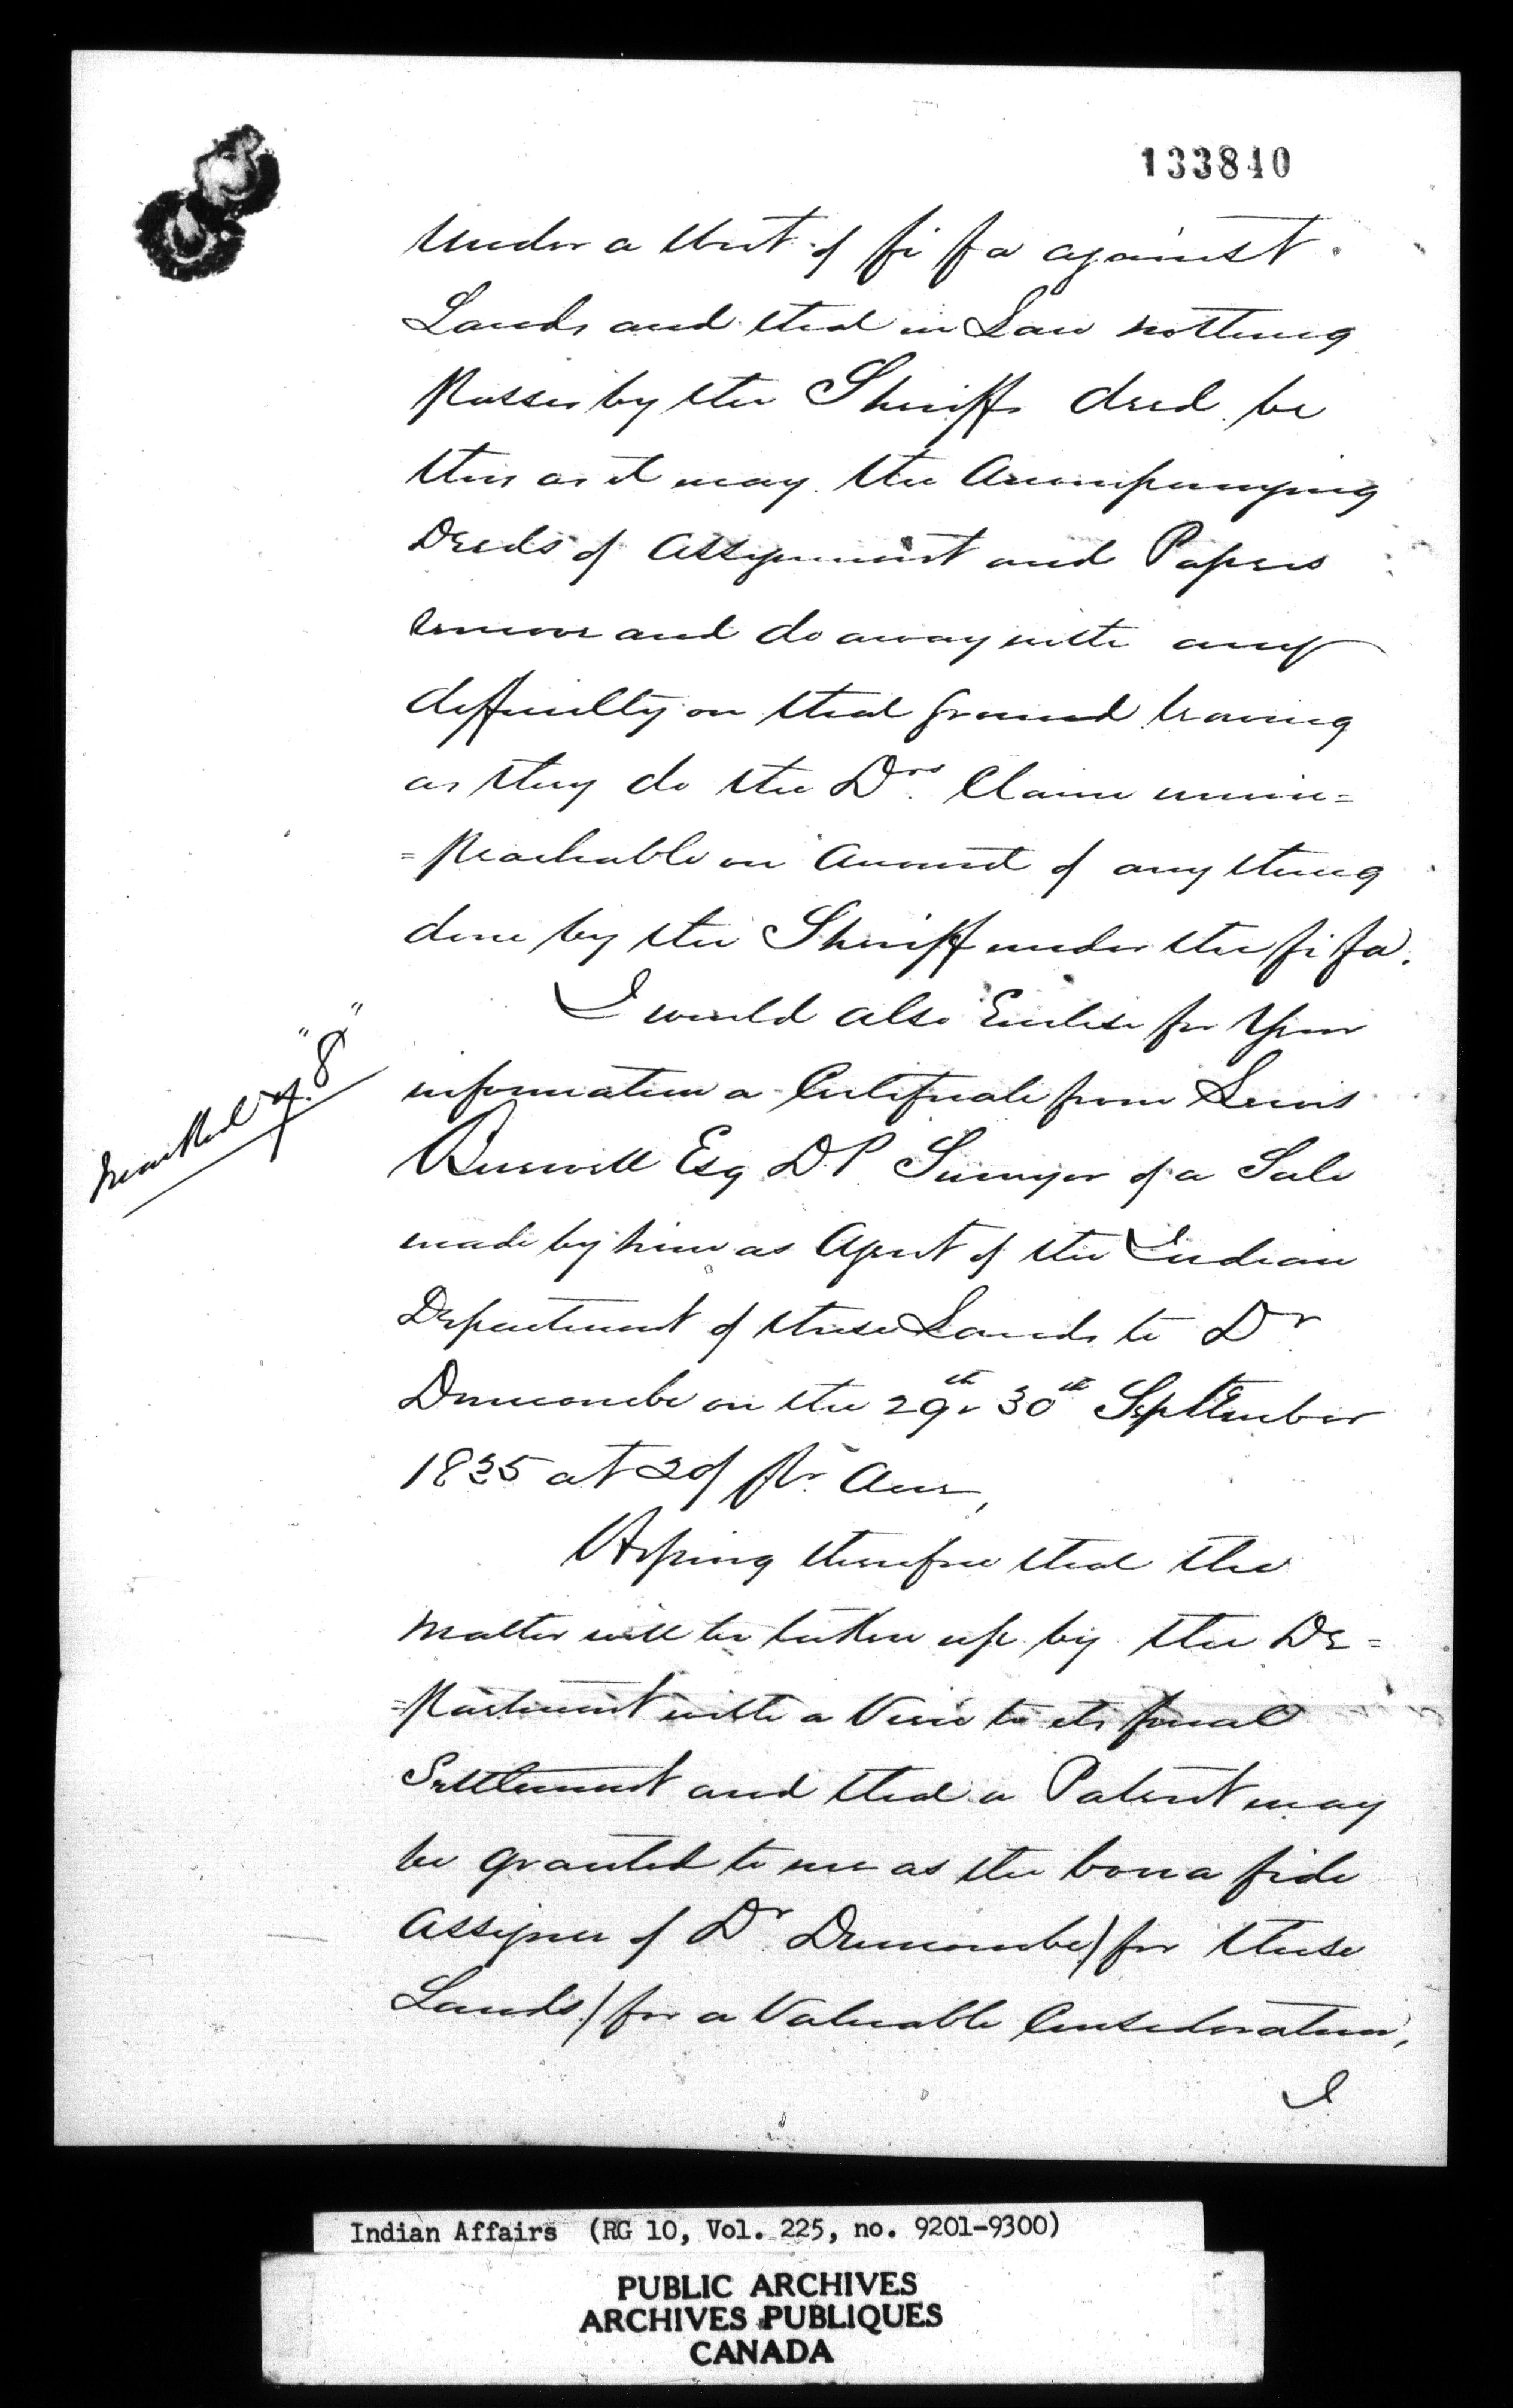 133840
Under a Writ of fi fa against
Lands and that in Law nothing
Passes by the Sheriffs deed be
this as it may the Accompanying
Deeds of Assignment and Papers
remove and do away with any
difficulty on that ground leaving
as they do the Drs. Claim unim=
=peachable on Account of any thing
done by the Sheriff under the fi fa.
I would also Enclose for Your
information a Certificate from Lewis
Marked "8"
Burwell Esq D.P. Surveyor of a Sale
made by him as Agent of the Indian
Department of these Lands to Dr
Duncombe on the 29th & 30th September
1835 at 20/ pr. Acre,
Hoping therefore that the
matter will be taken up by the De=
=partment with a View to its final
Settlement and that a Patent may
be granted to me as the bona fide
Assignee of Dr. Duncombe) for these
Lands) for a Valuable Consideration,
I
Indian Affairs (RG 10, Vol. 225, no. 9201-9300)
PUBLIC ARCHIVES
ARCHIVES PUBLIQUES
CANADA